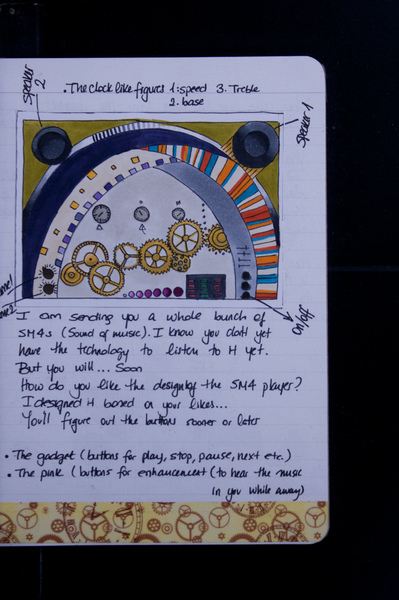 Speaker 2
• The clock like figures 1: speed 3. Treble
2. base
Speaker 1
on/off
I am sending you a whole bunch of
SM4s (Sound of music). I know you don't yet
have the technology to listen to it yet.
But you will... Soon
How do you like the design of the SM4 player?
I designed it based on your likes...
You'll figure out the buttons sooner or later
• The gadget (buttons for play, stop, pause, next etc.)
• The pink (buttons for enhancement (to hear the music
in you while away)